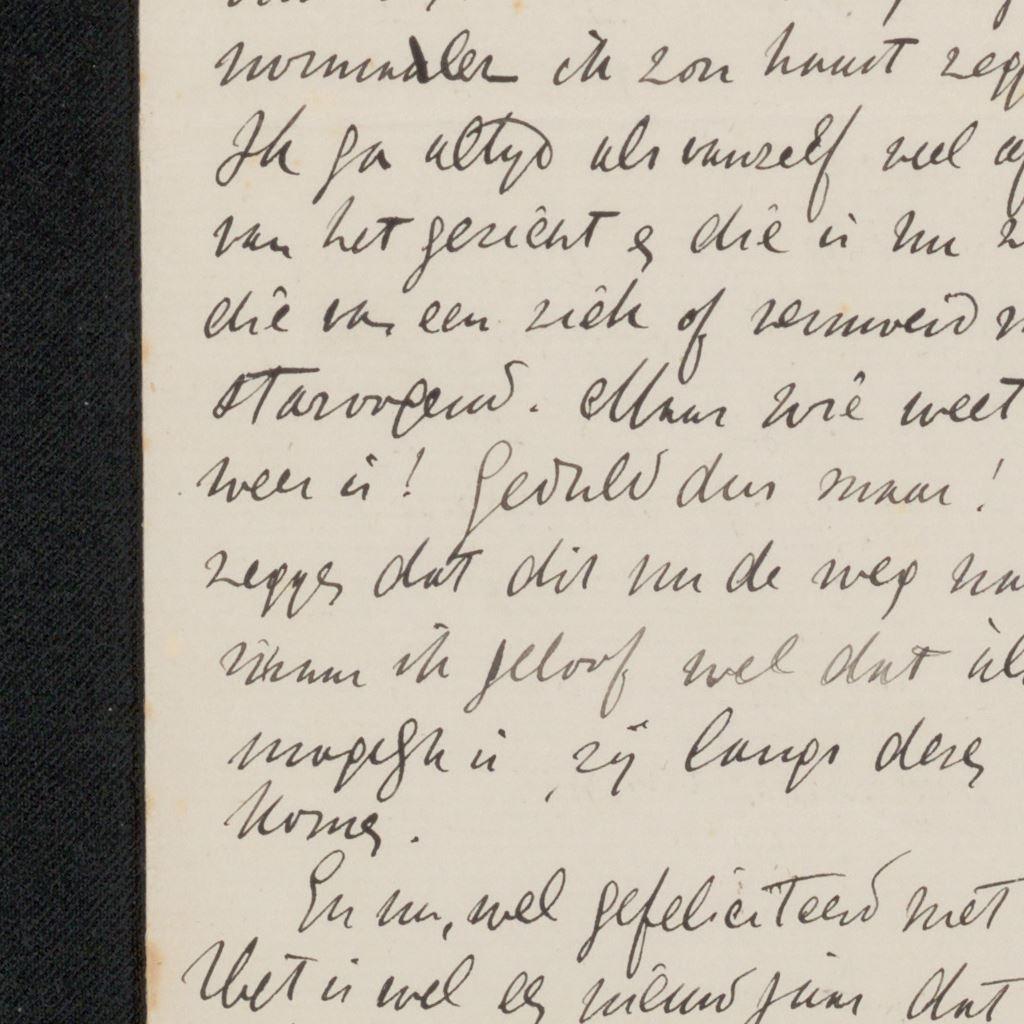 normaler ik zou haast zegg
Ik ga altyd als vanzelf veel af
van het gezicht en die is nu z
die van een ziek of vermoeid m
staroogend. Maar wie weet
weer is! Geduld dus maar!
zeggen dat dit nu de weg na
maar ik geloof wel dat als
mogelyk is, zij langs dezen
komen.
En nu, wel gefeliciteerd met
Het is wel een nieuwjaar dat